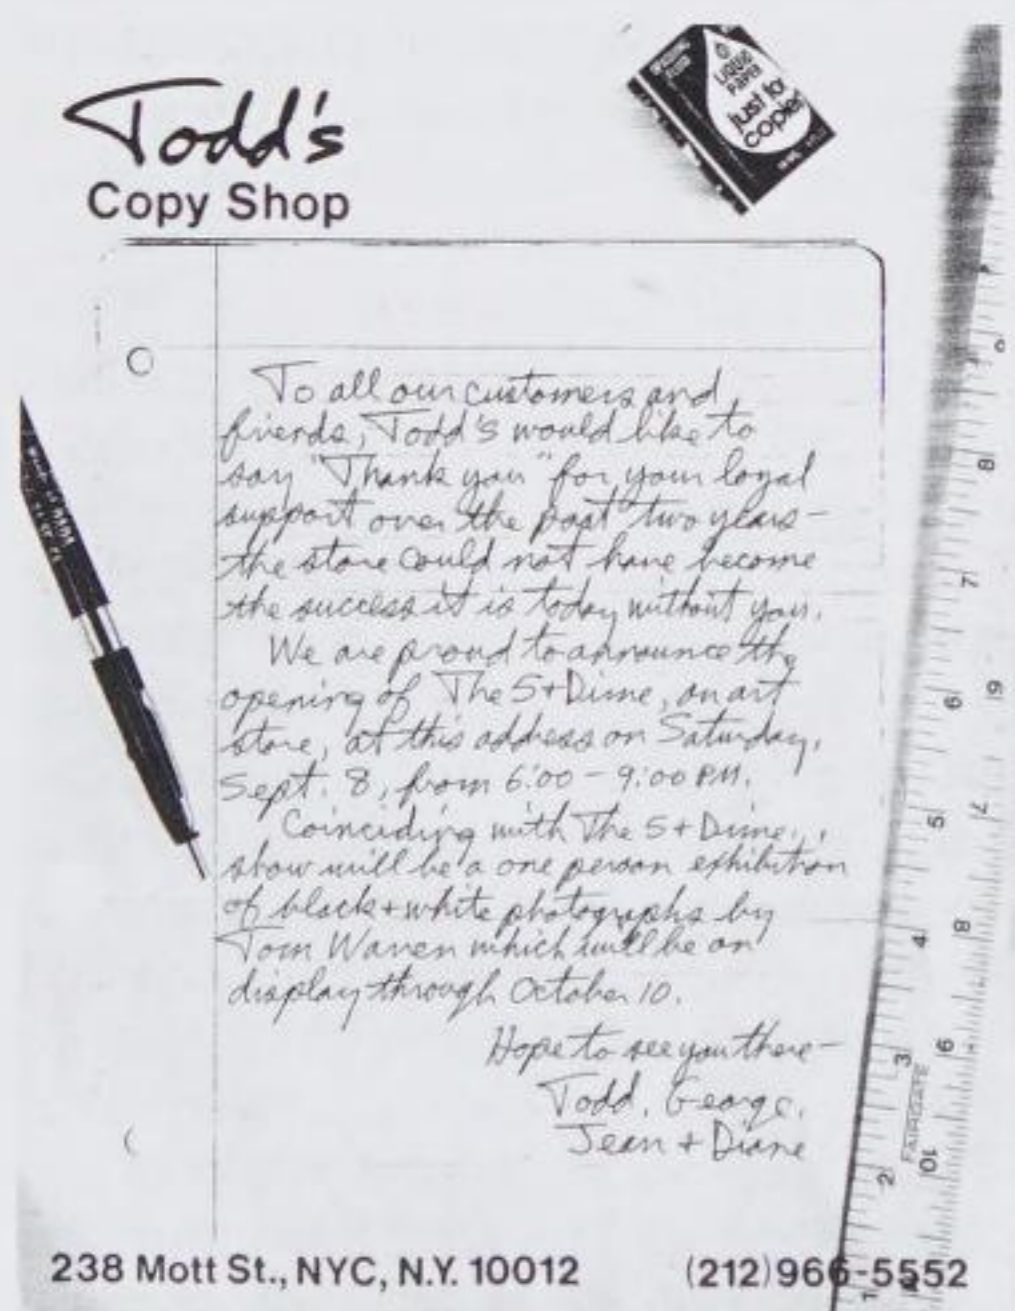 Todd's
Copy Shop
LIQUID
PAPER
just for
copies
To all our customers and
friends, Todd's would like to
say "Thank you" for your loyal
support over the past two years –
the store could not have become
the success it is today without you.
We are proud to announce the
opening of The 5+Dime, an art
store, at this address on Saturday,
Sept. 8, from 6:00 – 9:00 PM.
Coinciding with The 5+Dime
show will be a one person exhibition
of black+white photographs by
Tom Warren which will be on
display through October 10.
Hope to see you there –
Todd, George,
Jean + Diane
8
7
6
5
4
3
2
1
6
7
8
9
10
FAIRGATE
238 Mott St., NYC, N.Y. 10012
(212)966-5552